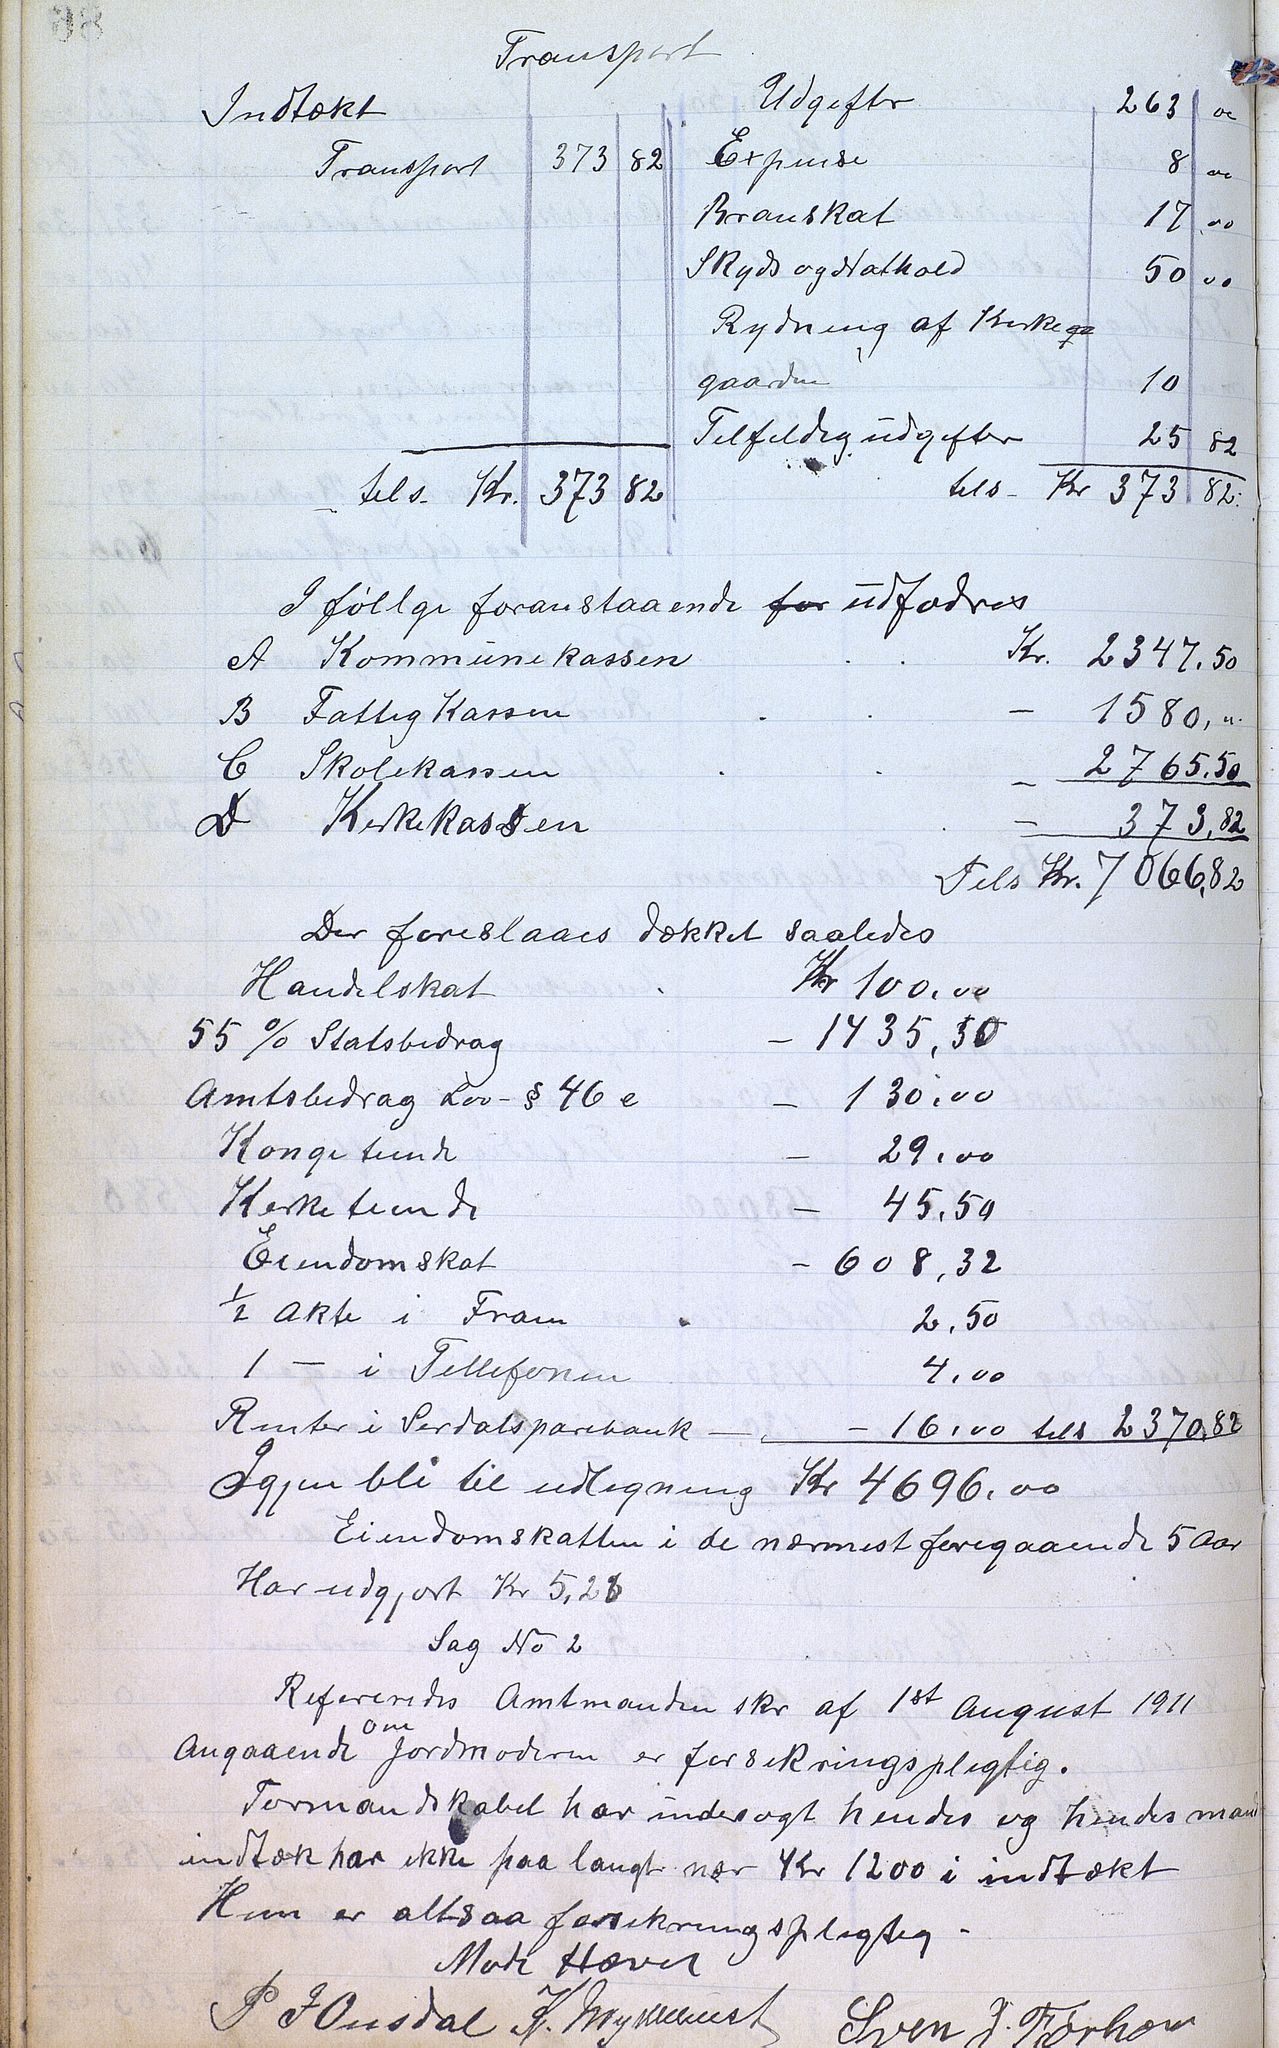 Transport
Indtækt
Transport 373 82
tels. Kr. 373 82
Udgifter 263 00
Expense 8 00
Branskat 17 00
Skyds og Nathold 50 00
Rydning af Kirke
gaarden 10
Telfeldig udgifter 25 82
tels - Kr 373 82
I føllge foranstaaende for udfodres
A Kommunekassen . . Kr. 2347.50
B Fattig Kassen . . - 1580, "
C Skolekassen . . - 2765.50
D Kerkekassen - 373,82
Tels Kr. 7066,82
Der foreslaaes dækket saaledes
Handelskat . Kr 100.00
55 % Statsbedrag - 1435,50
Amtsbedrag Lov - § 46 e - 130.00
Kongetiende - 29.00
Kerketiende - 45,50
Eiendomskat - 608,32
1/2 Akte i Fram . 2,50
1 — i Tellefonen 4,00
Renter i Serdalsparebank — - 16,00 tels 2370,82
Igjen bli til udlegning Kr 4696.00
Eiendomskatten i de nærmest foregaaende 5 Aar
Har udgjort Kr 5,26
Sag No 2
Refereredes Amtmanden skr af 1st August 1911
Angaaende om Jordmoderen er forsekringsplegtig.
Formandskabet har undersøgt hendes og hendes mand
indtæk har ikke paa langt nær Kr 1200 i indtækt
Hun er altsaa forsekringsplegteg -
Møde Hævet
P J Ousdal K. Sven J. Førhow